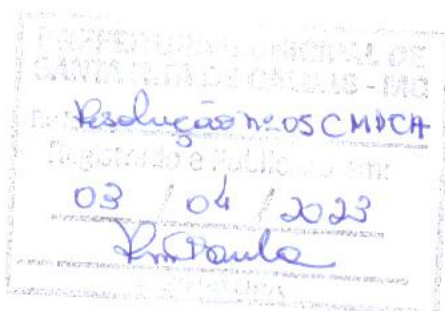 PREFEITURA MUNICIPAL DE
SANTA RITA DE CALDAS - MG
Resolução nº 05 CMDCA
Registrado e Publicado em:
03 / 04 / 2023